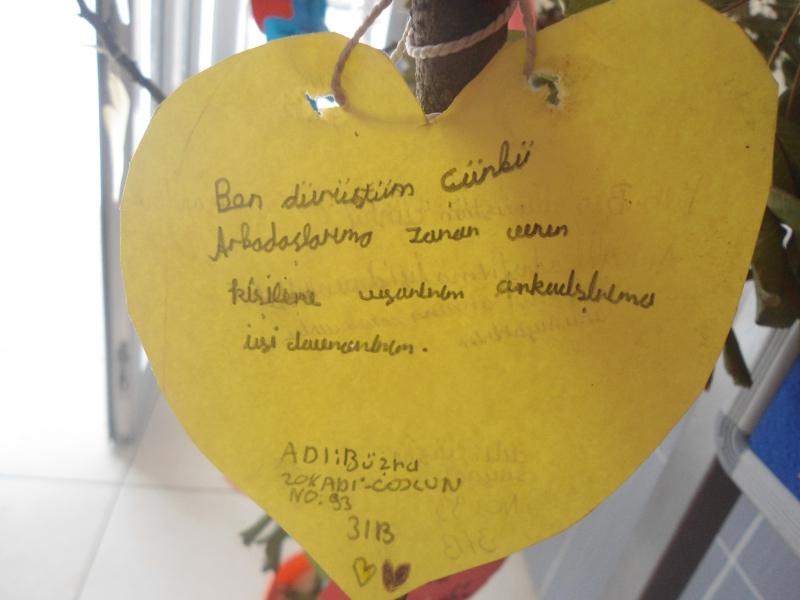 Ben dürüstüm Çünkü
Arkadaşlarıma zarar veren
kişilere uyarırım arkadşlrıma
iyi davranırım.
ADI:Büşra
SOKADI:COŞCUN
NO.93
3/B